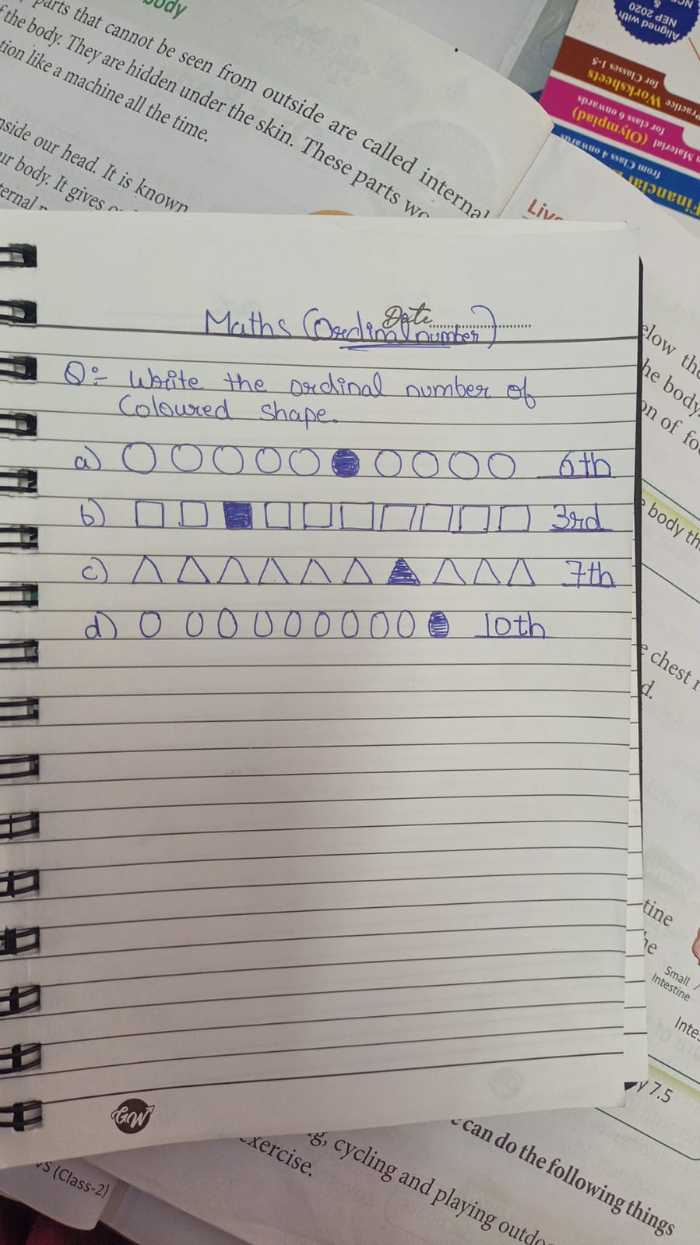 body
parts that cannot be seen from outside are called internal
the body. They are hidden under the skin. These parts
tion like a machine all the time.
nside our head. It is known
ur body. It gives
Aligned with
NEP 2020
&
Practice Worksheets
for Classes 1-5
Material (Olympiad)
for class 6 onwards
from Class 4 onwards
Date
Maths (Ordinal number)
Q:- Write the ordinal number of
Coloured shape.
a) 6th
b) 3rd
c) 7th
d) 10th
GW
elow the
he body
on of fo
body th
chest
d.
tine
he
Small
Intestine
Inte
7.5
can do the following things
g, cycling and playing outdo
exercise.
(Class-2)